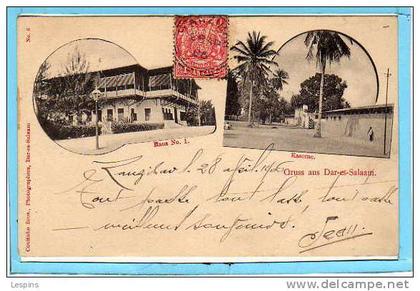 No. 6
Coutinho Bros., Photographers, Dar-es-Salaam
Haus No. 1.
Kaserne.
Gruss aus Dar-es-Salaam.
Zanzibar le 28 april
Tout passe tout lasse, tout
meilleurs souvenirs.
Lespins